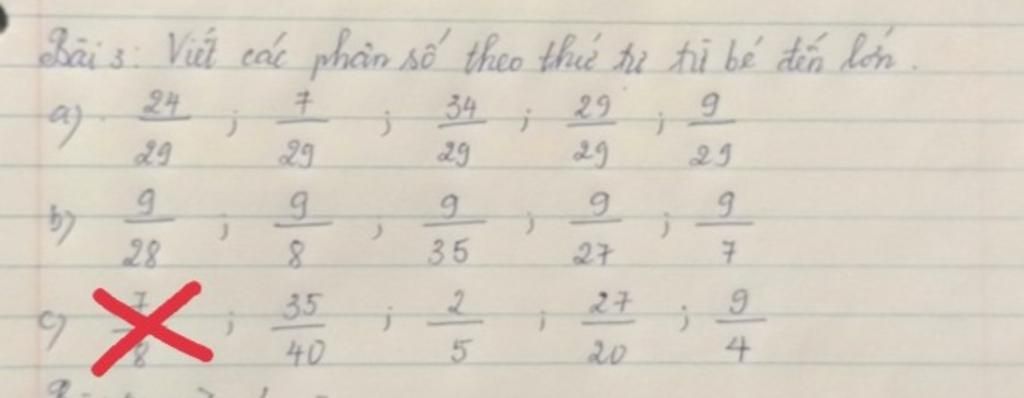 Bài 3: Viết các phân số theo thứ tự từ bé đến lớn.
a) 24/29 ; 7/29 ; 34/29 ; 29/29 ; 9/29
b) 9/28 ; 9/8 ; 9/35 ; 9/27 ; 9/7
c) 7/8 ; 35/40 ; 2/5 ; 27/20 ; 9/4